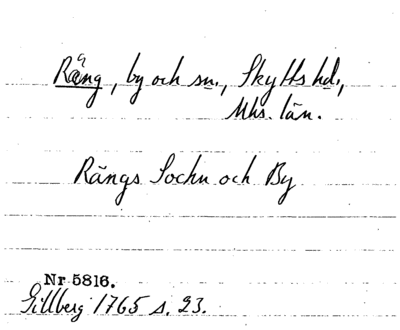 Räng, by och sn., Skytts hd.,
Mhs. län.
Rängs Sochn och By
Nr 5816.
Gillberg 1765 s. 23.